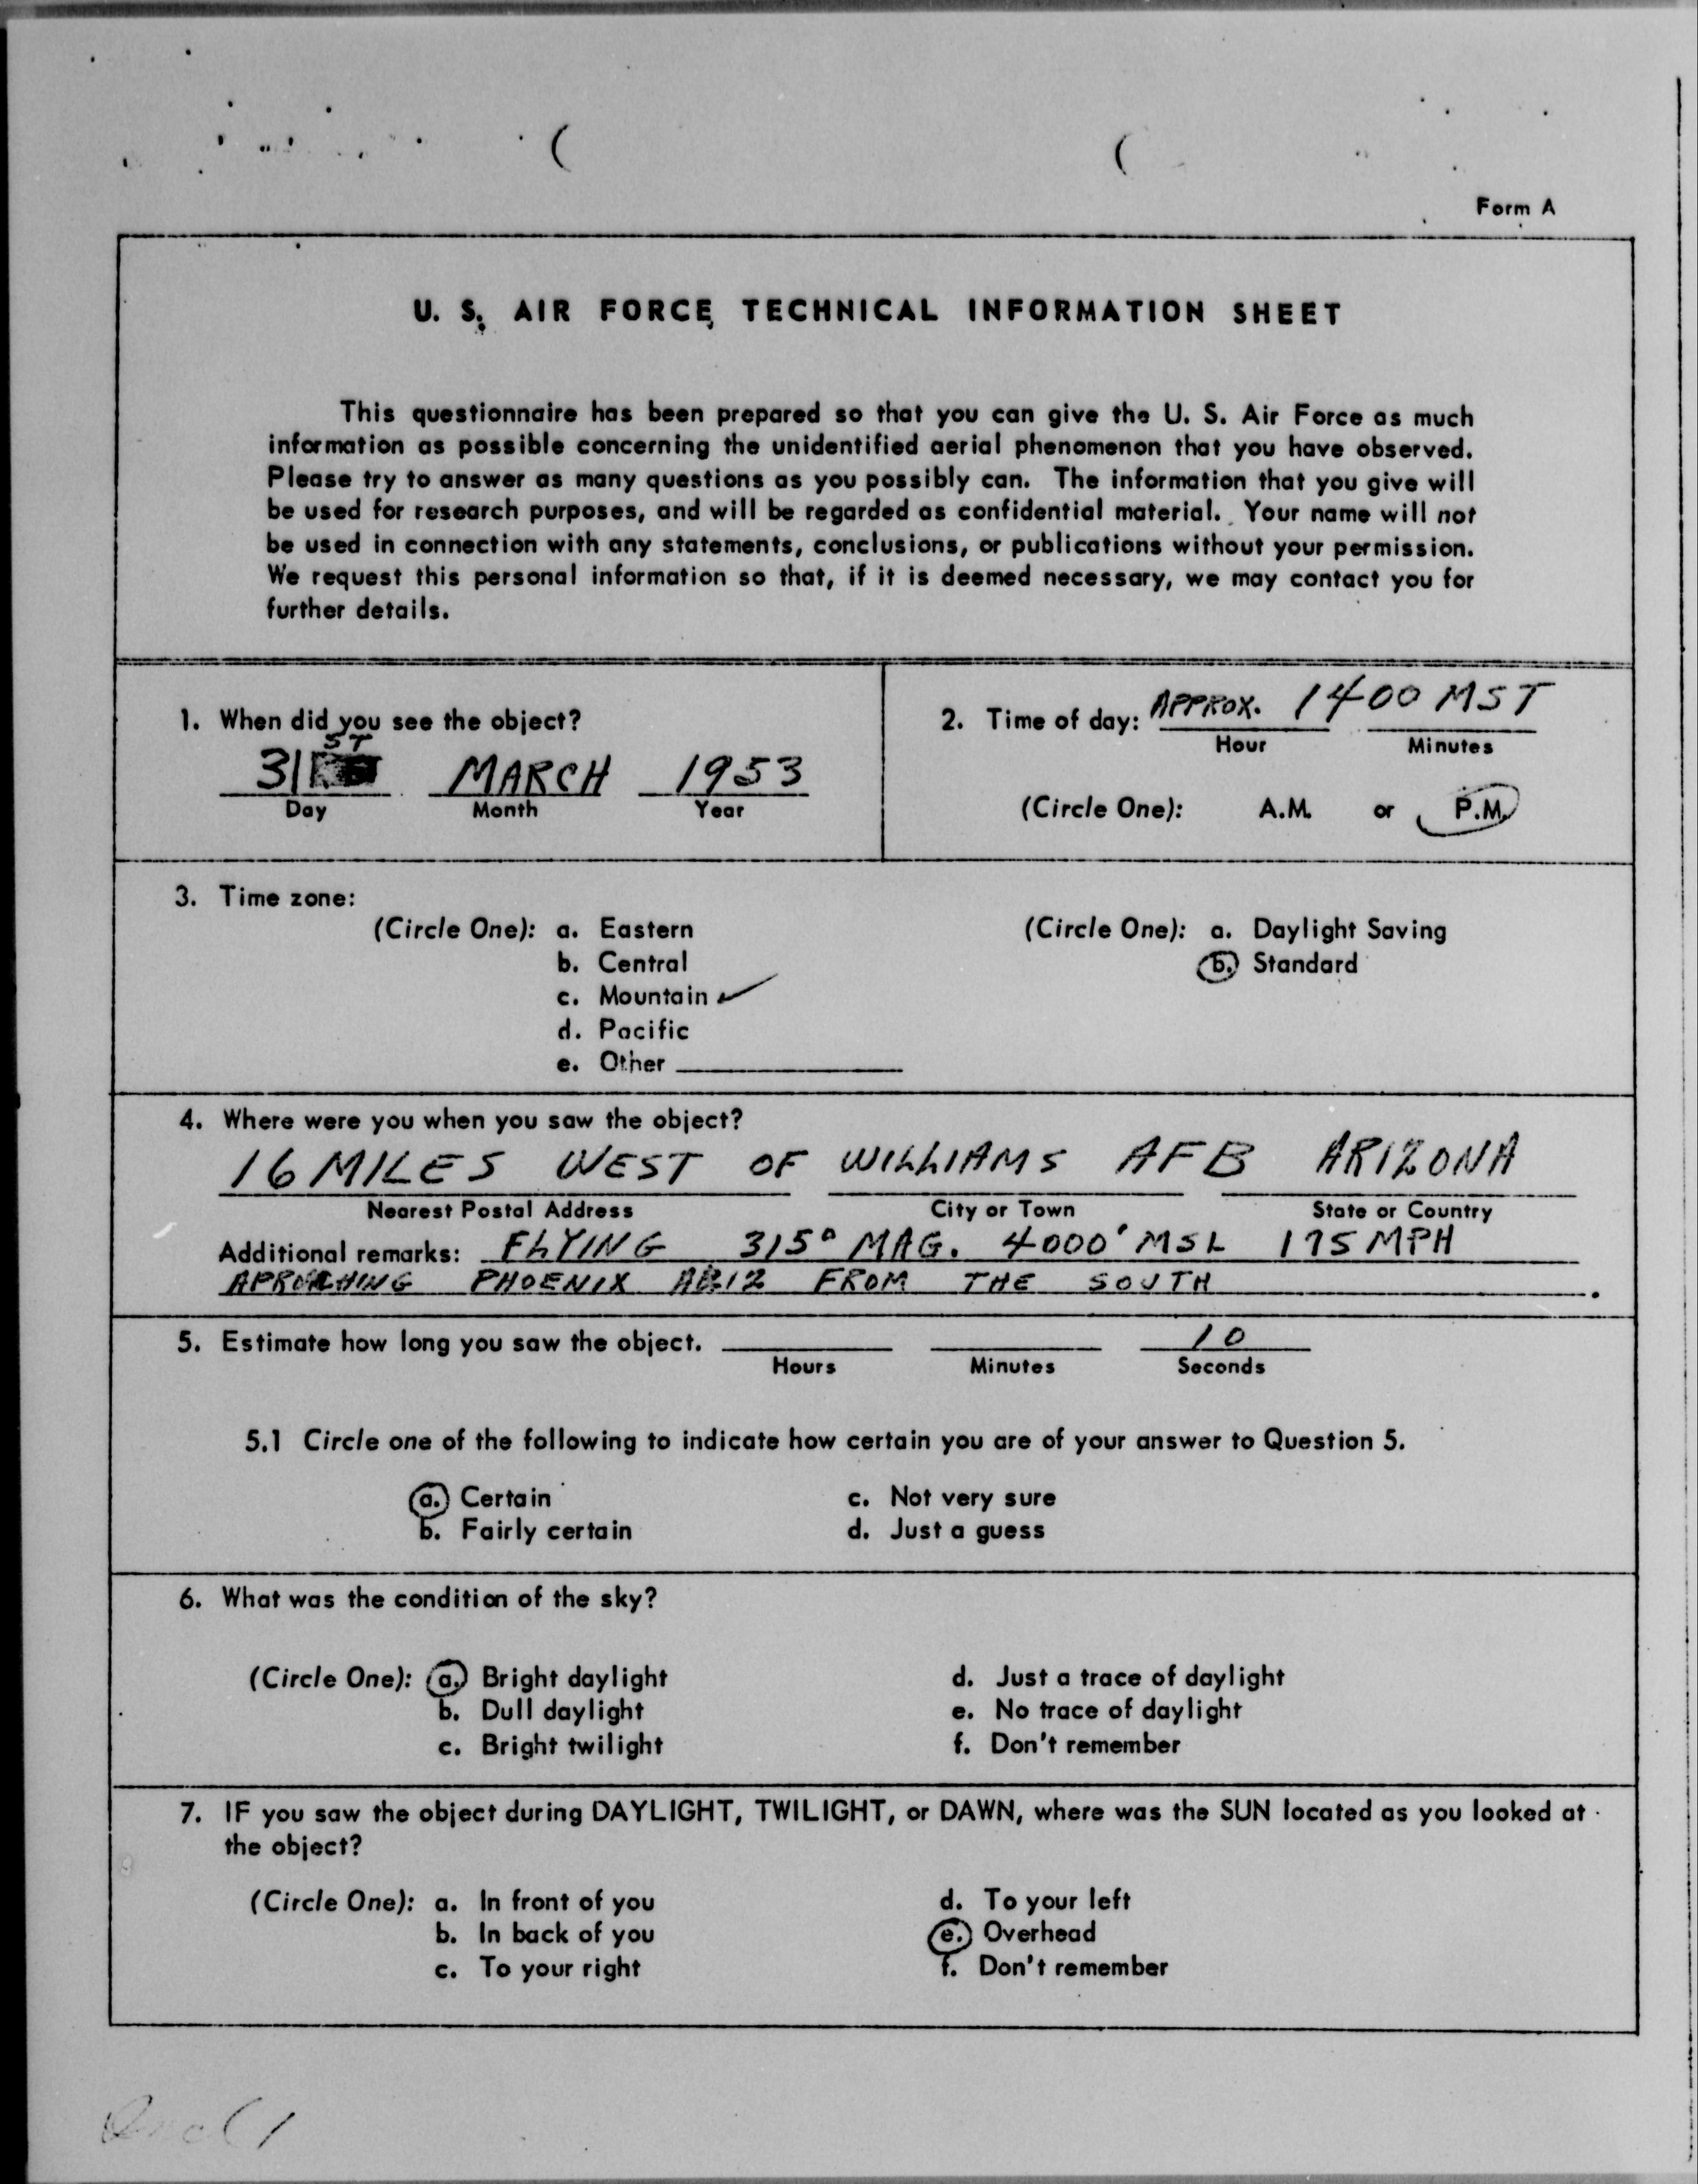 Form A
U. S. AIR FORCE TECHNICAL INFORMATION SHEET
This questionnaire has been prepared so that you can give the U. S. Air Force as much
information as possible concerning the unidentified aerial phenomenon that you have observed.
Please try to answer as many questions as you possibly can. The information that you give will
be used for research purposes, and will be regarded as confidential material. Your name will not
be used in connection with any statements, conclusions, or publications without your permission.
We request this personal information so that, if it is deemed necessary, we may contact you for
further details.
1. When did you see the object?
31 ST MARCH 1953
Day Month Year
2. Time of day: APPROX. 1400 MST
Hour Minutes
(Circle One): A.M. or P.M.
3. Time zone:
(Circle One): a. Eastern
b. Central
c. Mountain ✓
d. Pacific
e. Other
(Circle One): a. Daylight Saving
b. Standard
4. Where were you when you saw the object?
16 MILES WEST OF WILLIAMS AFB ARIZONA
Nearest Postal Address City or Town State or Country
Additional remarks: FLYING 315° MAG. 4000' MSL 175 MPH
APROACHING PHOENIX ARIZ FROM THE SOUTH
5. Estimate how long you saw the object. 10
Hours Minutes Seconds
5.1 Circle one of the following to indicate how certain you are of your answer to Question 5.
a. Certain c. Not very sure
b. Fairly certain d. Just a guess
6. What was the condition of the sky?
(Circle One): a. Bright daylight d. Just a trace of daylight
b. Dull daylight e. No trace of daylight
c. Bright twilight f. Don't remember
7. IF you saw the object during DAYLIGHT, TWILIGHT, or DAWN, where was the SUN located as you looked at
the object?
(Circle One): a. In front of you d. To your left
b. In back of you e. Overhead
c. To your right f. Don't remember